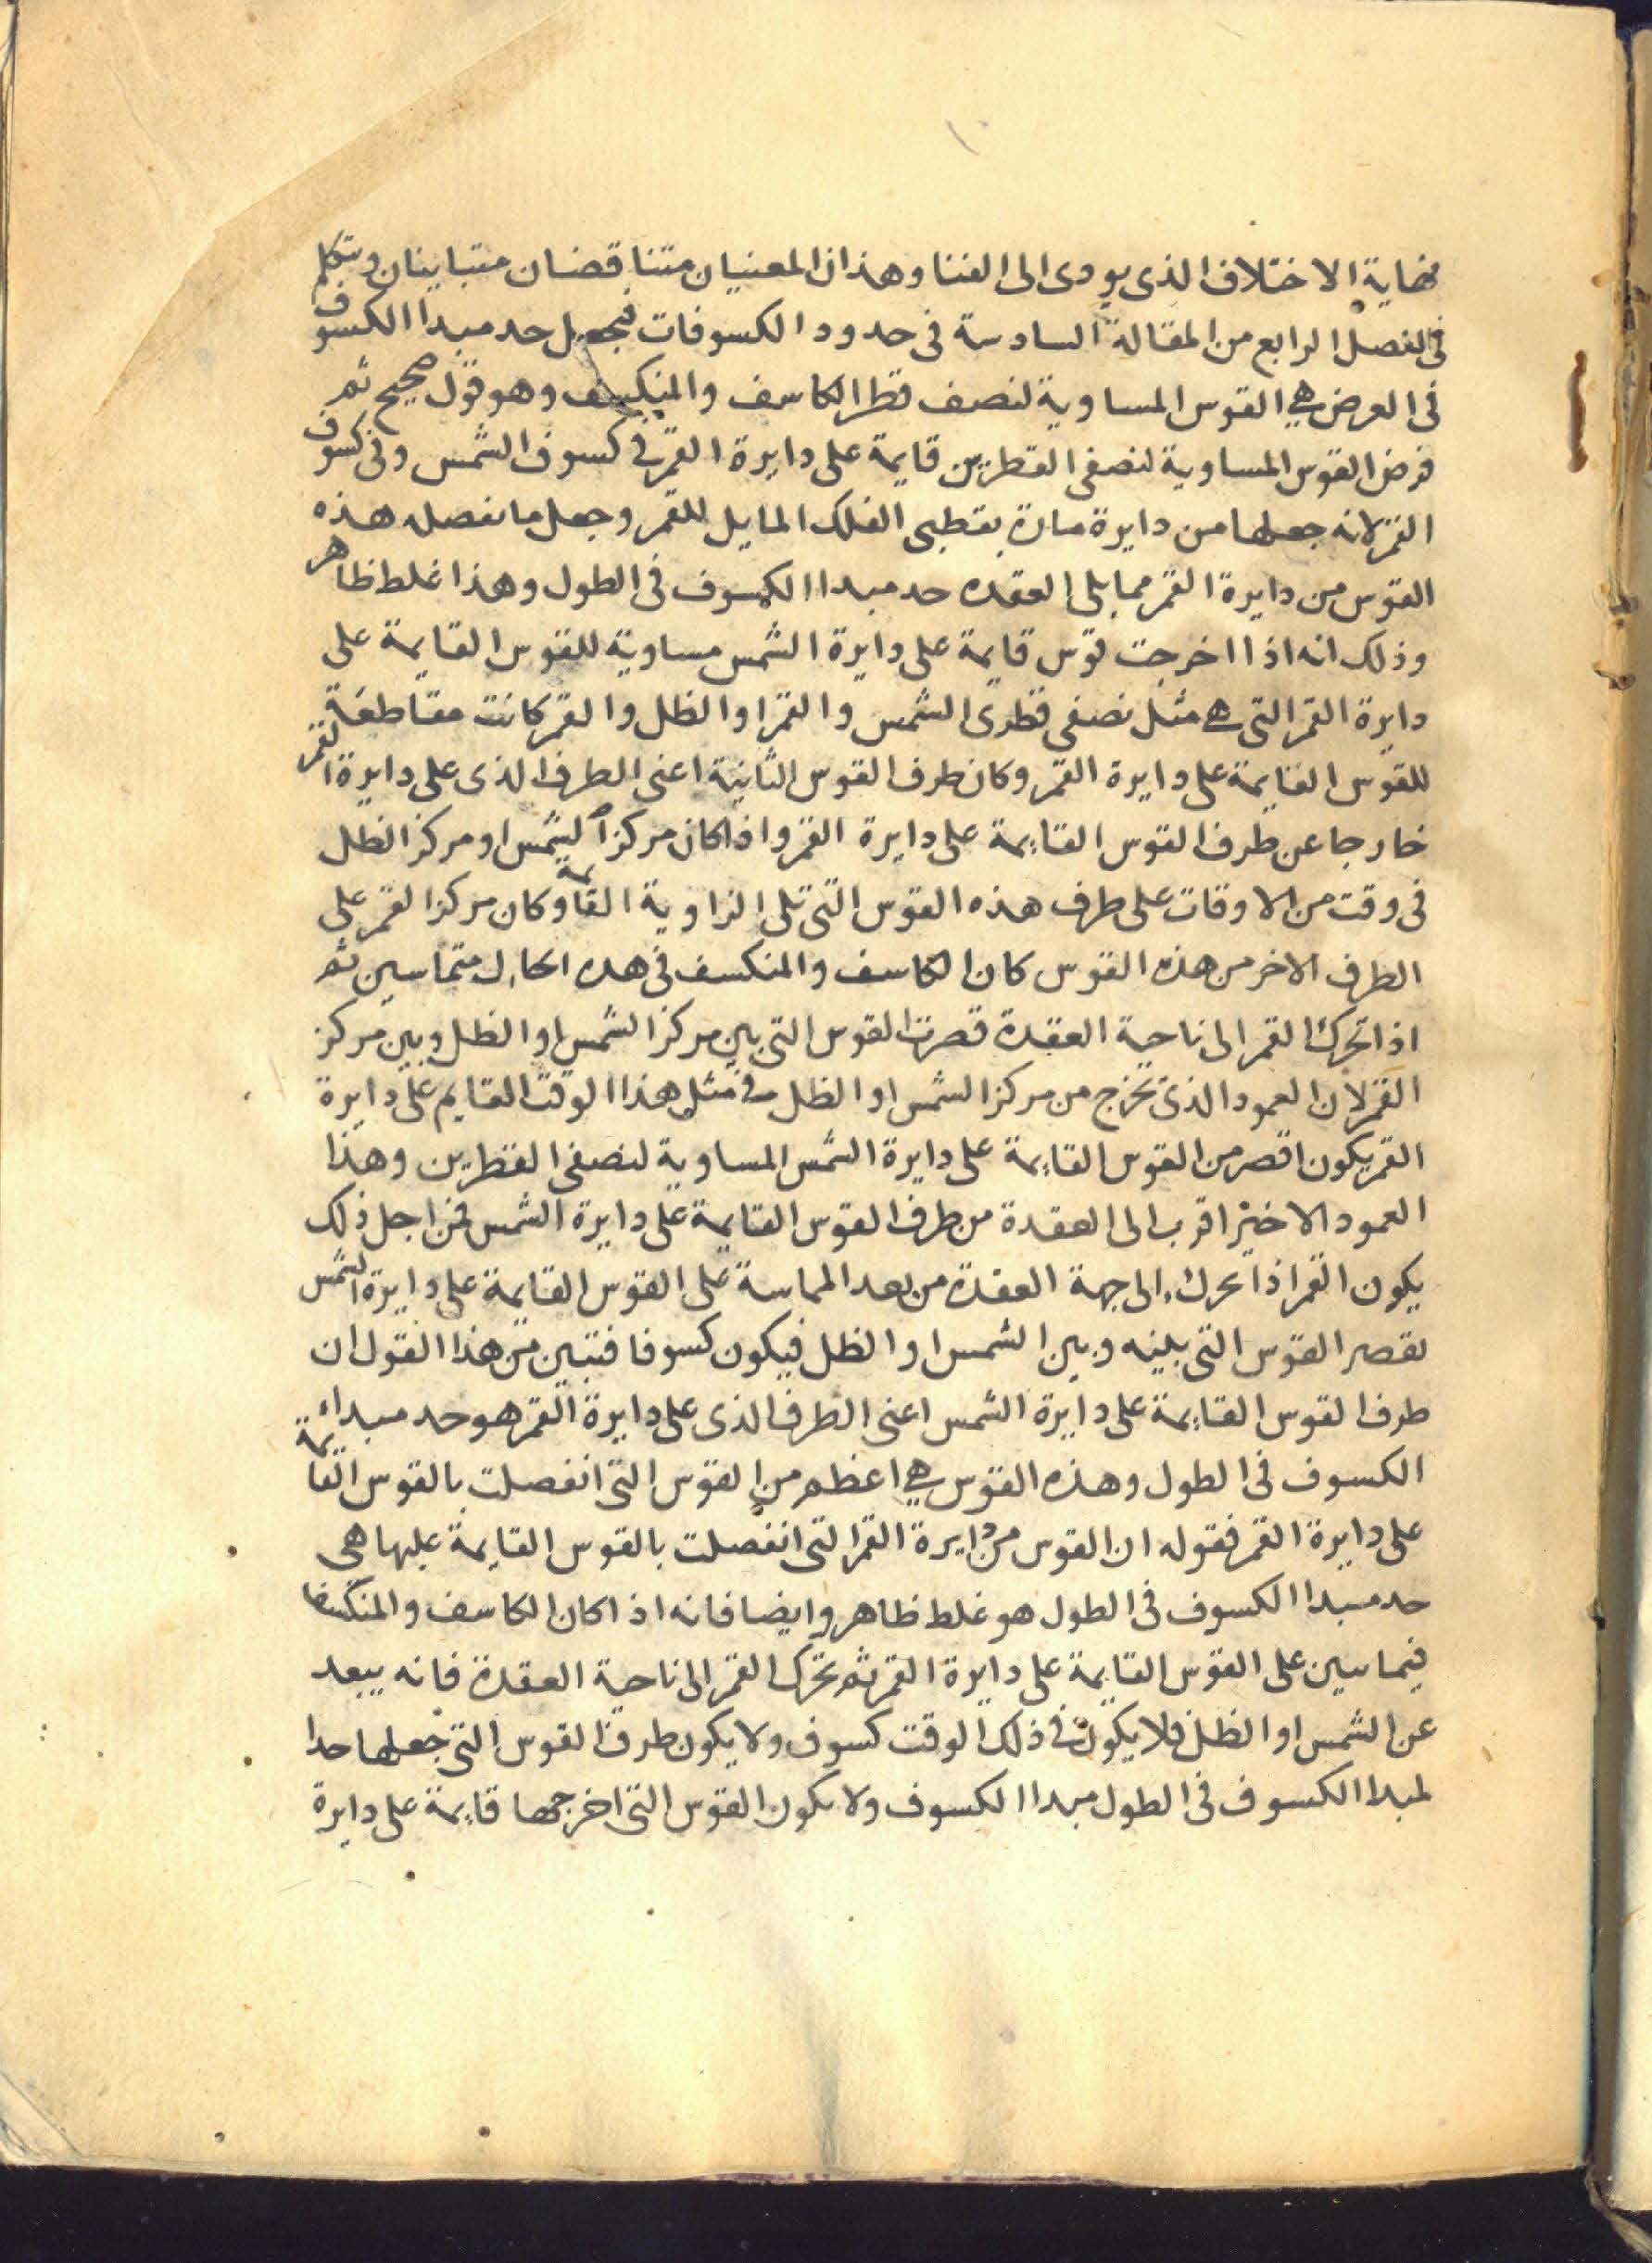 نهاية الاختلاف الذى يودى الى الفنا وهذان المعنيان متناقضان متباينان ويتكلم
فى الفصل الرابع من المقالة السادسة فى حدود الكسوفات فيجعل حد مبدا الكسوف
فى العرض هي القوس المساوية لنصف قطر الكاسف والمنكسف وهو قول صحيح ثم
فرض القوس المساوية لنصفى القطرين قايمة على دايرة القمر فى كسوف الشمس وفى كسوف
القمر لانه جعلها من دايرة مارة بقطبى الفلك المايل للقمر وجعل ما تفصله هذه
القوس من دايرة القمر مما يلى العقده حد مبدا الكسوف فى الطول وهذا غلط ظاهر
وذلك انه اذا اخرجت قوس قايمة على دايرة الشمس مساوية للقوس القايمة على
دايرة القمر التى هي مثل نصفى قطرى الشمس والقمر او الظل والقمر كانت مقاطعة
للقوس القايمة على دايرة القمر وكان طرف القوس الثانية اعنى الطرف الذى على دايرة القمر
خارجا عن طرف القوس القايمة على دايرة القمر واذا كان مركز الشمس او مركز الظل
فى وقت من الاوقات على طرف هذه القوس التى تلى الزاوية القايمة وكان مركز القمر على
الطرف الاخر من هذه القوس كان الكاسف والمنكسف فى هذه الحال متماسين ثم
اذا تحرك القمر الى ناحية العقدة قصرت القوس التى بين مركز الشمس او الظل وبين مركز
القمر لان العمود الذى يخرج من مركز الشمس او الظل فى مثل هذا الوقت القايم على دايرة
القمر يكون اقصر من القوس القايمة على دايرة الشمس المساوية لنصفى القطرين وهذا
العمود الاخير اقرب الى العقدة من طرف القوس القايمة على دايرة الشمس فمن اجل ذلك
يكون القمر اذا تحرك الى جهة العقدة من بعد المماسة على القوس القايمة على دايرة الشمس
تقصر القوس التى بينه وبين الشمس او الظل فيكون كسوفا فتبين من هذا القول ان
طرف القوس القايمة على دايرة الشمس اعنى الطرف الذى على دايرة القمر هو حد مبداء
الكسوف فى الطول وهذه القوس هي اعظم من القوس التى انفصلت بالقوس القايمة
على دايرة القمر فقوله ان القوس من دايرة القمر التى انفصلت بالقوس القايمة عليها هى
حد مبدا الكسوف فى الطول هو غلط ظاهر وايضا فانه اذا كان الكاسف والمنكسف
فيماسين على القوس القايمة على دايرة القمر ثم تحرك القمر الى ناحية العقدة فانه يبعد
عن الشمس او الظل فلا يكون فى ذلك الوقت كسوف ولا يكون طرف القوس التى جعلها حدا
لمبدا الكسوف فى الطول مبدا الكسوف ولا يكون القوس التى اخرجها قايمة على دايرة